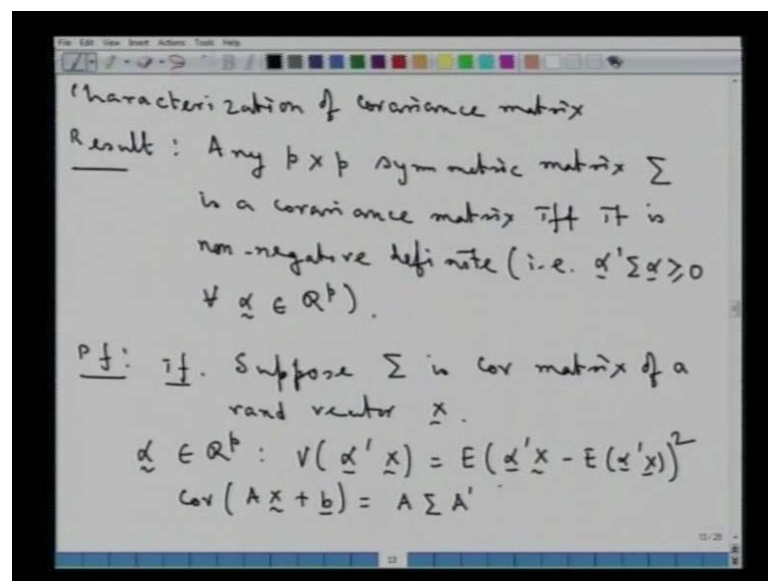 File Edit View Insert Actions Tools Help
Characterization of covariance matrix
Result : Any p x p symmetric matrix Σ
is a covariance matrix iff it is
non-negative definite (i.e. α'Σα ≥ 0
∀ α ∈ R^p).
Pf: if. Suppose Σ is cov matrix of a
rand vector x.
α ∈ R^p : V(α'x) = E(α'x - E(α'x))^2
Cov(Ax + b) = AΣA'
13/26
13